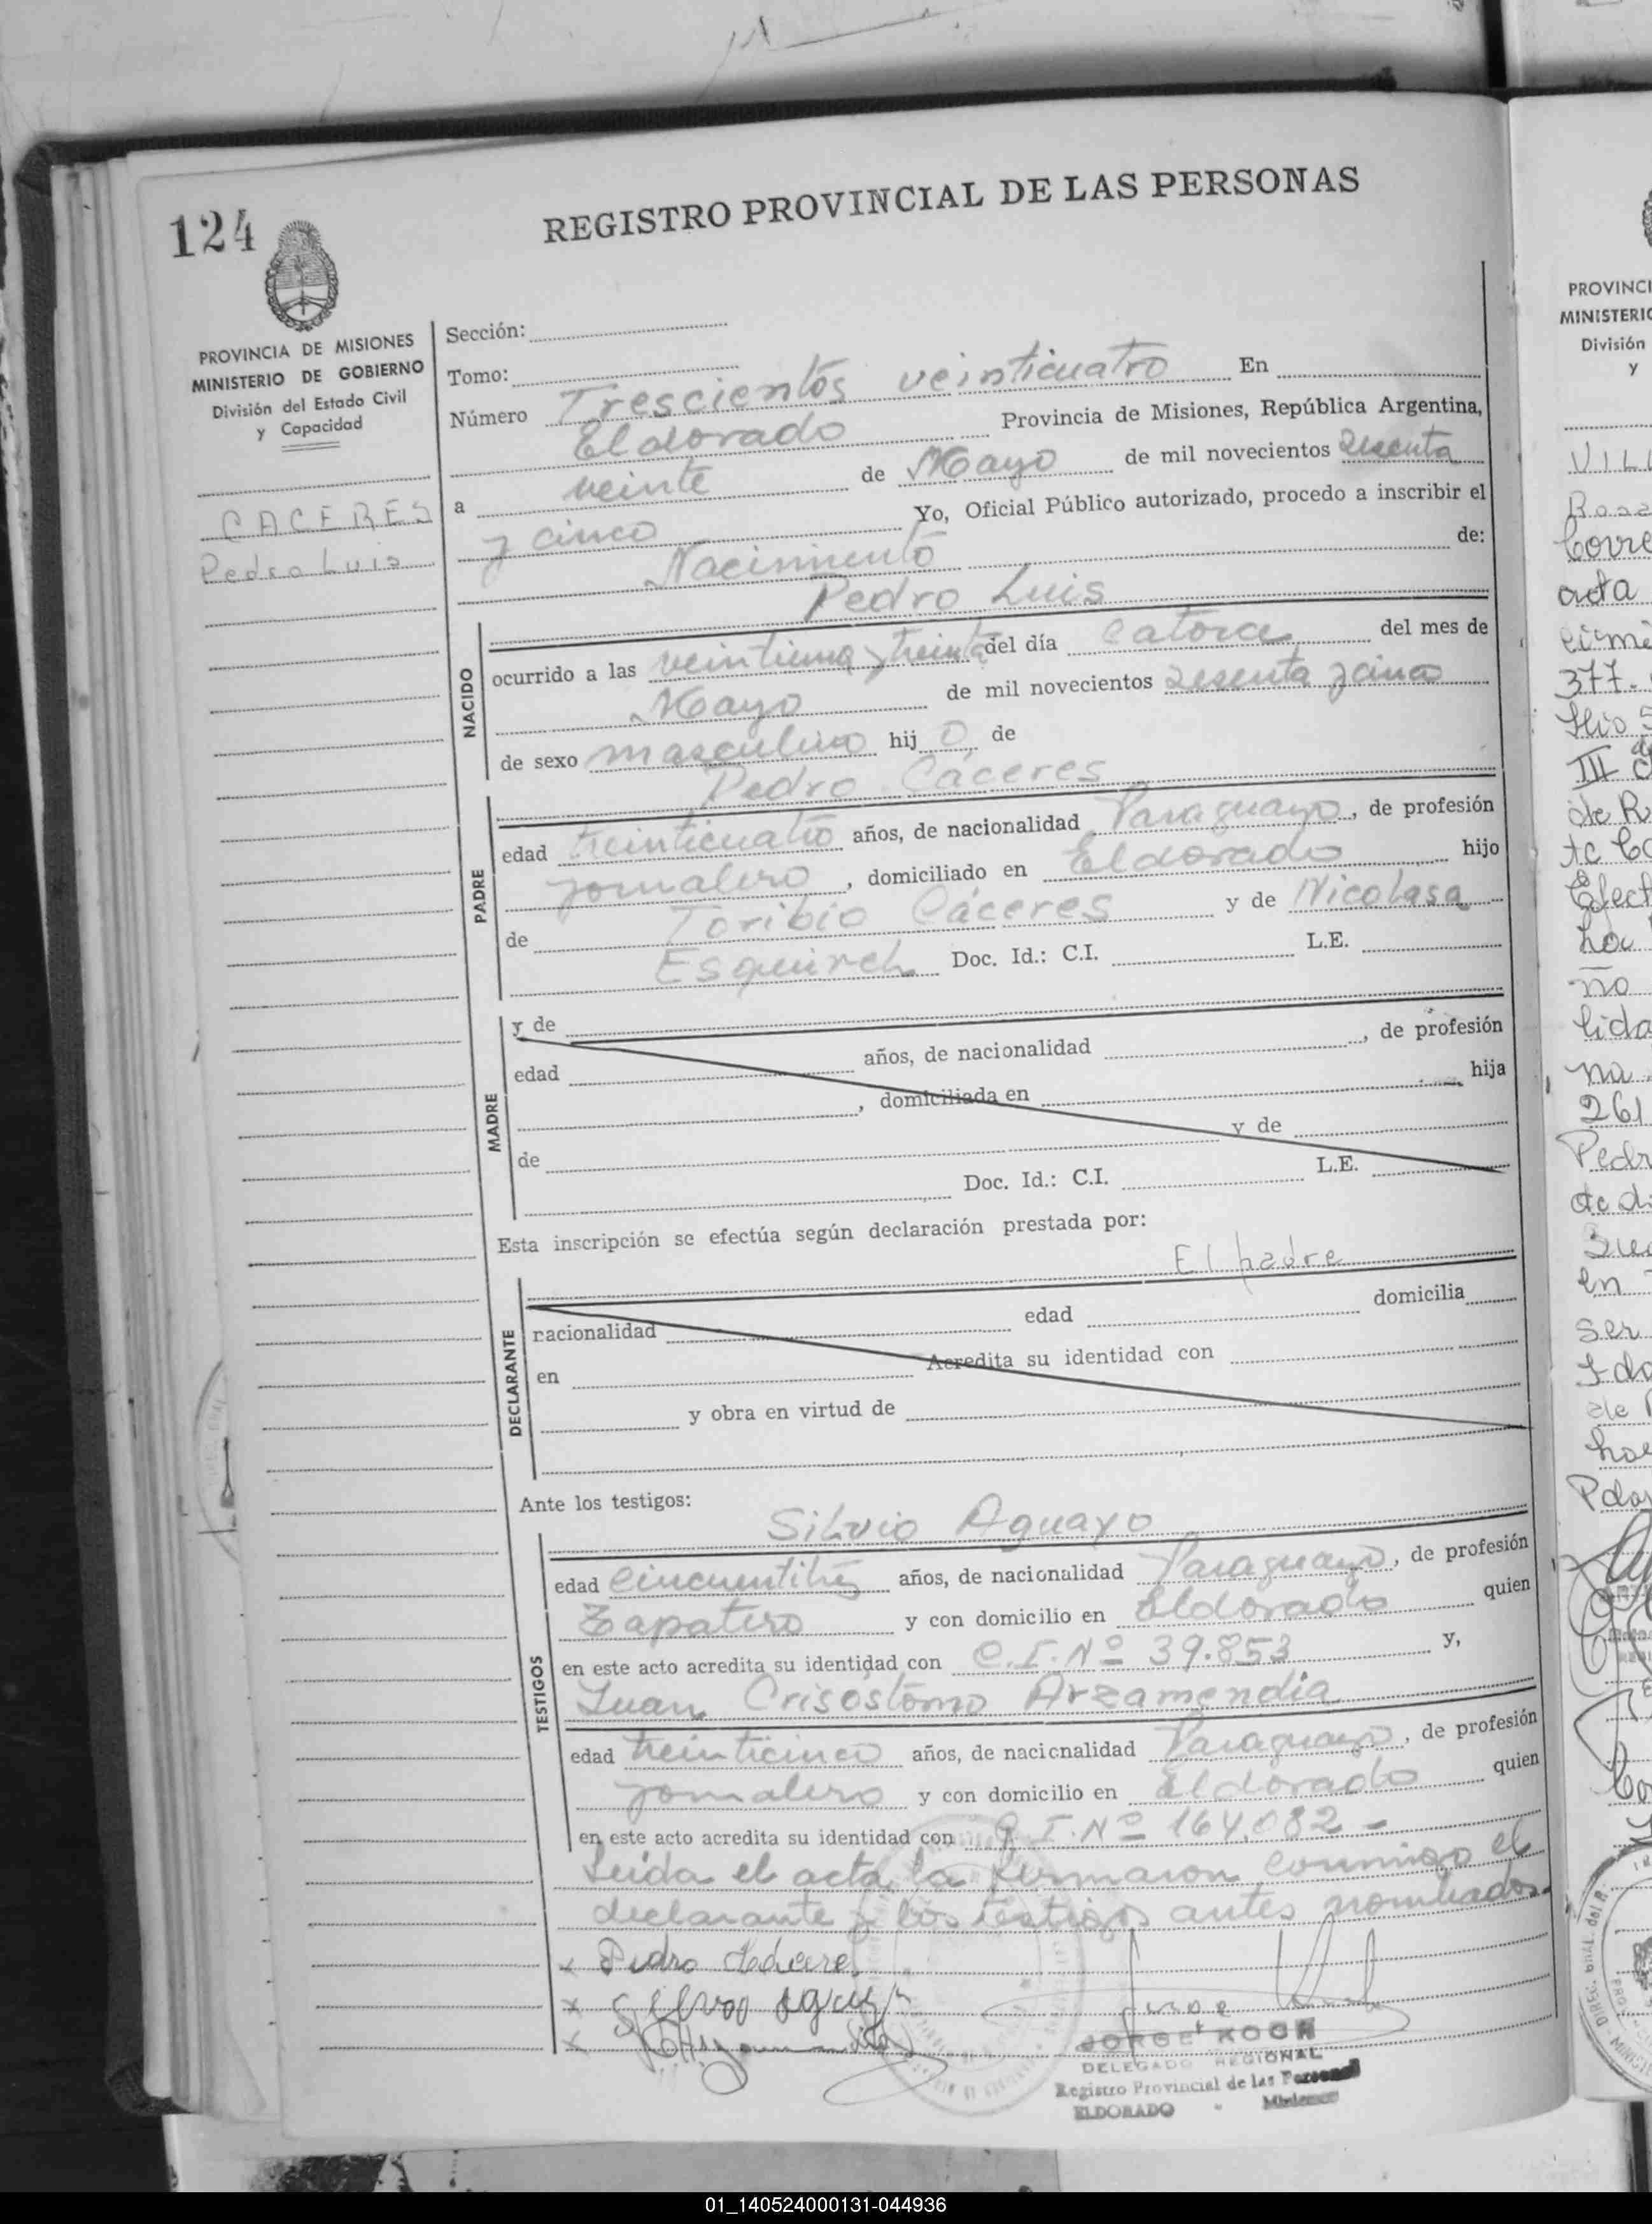 124
REGISTRO PROVINCIAL DE LAS PERSONAS
PROVINCIA DE MISIONES
MINISTERIO DE GOBIERNO
División del Estado Civil
y Capacidad
CACERES
Pedro Luis
Sección:
Tomo:
Número Trescientos veinticuatro En
Eldorado Provincia de Misiones, República Argentina,
a veinte de Mayo de mil novecientos sesenta
y cinco Yo, Oficial Público autorizado, procedo a inscribir el
Nacimiento de:
Pedro Luis
NACIDO
ocurrido a las veintiuna y treinta del día catorce del mes de
Mayo de mil novecientos sesenta y cinco
de sexo masculino hijo de
Pedro Cáceres
PADRE
edad treinticuatro años, de nacionalidad Paraguayo, de profesión
jornalero, domiciliado en Eldorado hijo
de Toribio Cáceres y de Nicolasa
Doc. Id.: C.I. L.E.
MADRE
y de
edad años, de nacionalidad , de profesión
, domiciliada en hija
de y de
Doc. Id.: C.I. L.E.
Esta inscripción se efectúa según declaración prestada por:
El padre
DECLARANTE
nacionalidad edad domicilia
en Acredita su identidad con
y obra en virtud de
Ante los testigos:
Silvio Aguayo
TESTIGOS
edad años, de nacionalidad Paraguayo, de profesión
Zapatero y con domicilio en Eldorado quien
en este acto acredita su identidad con C.I. Nº 39.853 y,
Juan Crisóstomo Arzamendia
edad treinticinco años, de nacionalidad Paraguayo, de profesión
jornalero y con domicilio en Eldorado quien
en este acto acredita su identidad con C.I. Nº 164.082 -
Leida el acta la firmaron conmigo el
declarante y los testigos antes nombrados.
x Pedro
x
x
JORGE KOCH
DELEGADO REGIONAL
Registro Provincial de las Personas
ELDORADO - Misiones
PROVINCI
MINISTERIO
División
y
acta
377.
III
de R
261
Pedr
en
ser
01_140524000131-044936